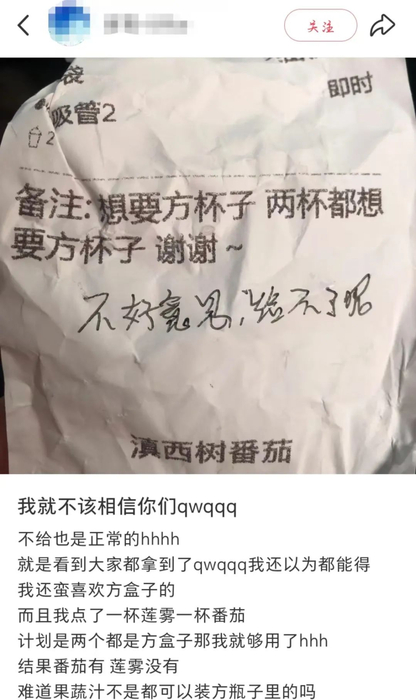 关注
袋
即时
吸管2
2
备注:想要方杯子 两杯都想
要方杯子 谢谢~
不好意思,给不了呢
滇西树番茄
我就不该相信你们qwqqq
不给也是正常的hhhh
就是看到大家都拿到了qwqqq我还以为都能得
我还蛮喜欢方盒子的
而且我点了一杯莲雾一杯番茄
计划是两个都是方盒子那我就够用了hhh
结果番茄有 莲雾没有
难道果蔬汁不是都可以装方瓶子里的吗